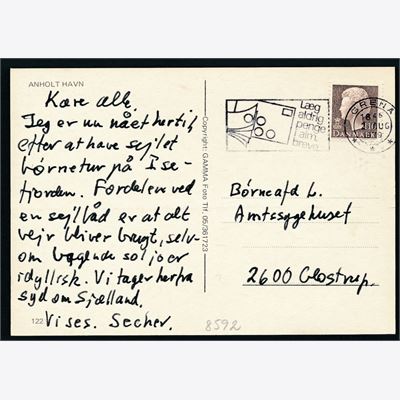 ANHOLT HAVN
Kære alle.
Jeg er nu nået hertil
efter at have sejlet
børnetur på Ise-
fjorden. Fordelen ved
en sejlbåd er at alt
vejr bliver brugt, selv-
om bagende sol jo er
idyllisk. Vi tager herfra
syd om Sjælland.
Vi ses. Secher.
122
Copyright: GAMMA Foto Tlf. 05/361723
Læg
aldrig
penge
i alm.
breve
GRENA
DANMARK
Børneafd L.
Amtssygehuset
2600 Glostrup.
8592